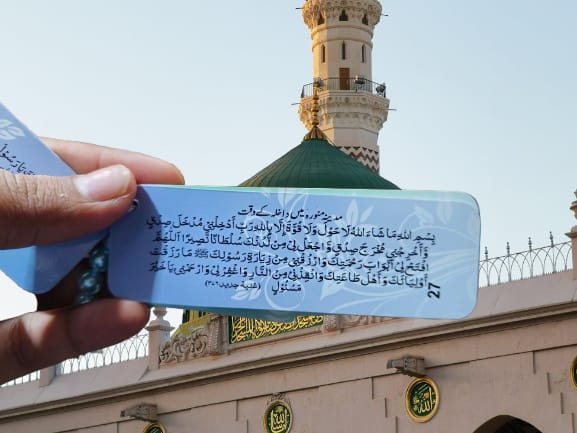 مدینہ منورہ میں داخلہ کے وقت
بِسْمِ اللهِ مَا شَاءَ اللهُ لَا حَوْلَ وَلَا قُوَّةَ إِلَّا بِاللهِ رَبِّ أَدْخِلْنِيْ مُدْخَلَ صِدْقٍ
وَّأَخْرِجْنِيْ مُخْرَجَ صِدْقٍ وَّاجْعَلْ لِيْ مِنْ لَّدُنْكَ سُلْطَانًا نَّصِيْرًا اَللّٰهُمَّ
افْتَحْ لِيْ أَبْوَابَ رَحْمَتِكَ وَارْزُقْنِيْ مِنْ زِيَارَةِ رَسُوْلِكَ ﷺ مَا رَزَقْتَ
أَوْلِيَائَكَ وَأَهْلَ طَاعَتِكَ وَأَنْقِذْنِيْ مِنَ النَّارِ وَاغْفِرْ لِيْ وَارْحَمْنِيْ يَا خَيْرَ
مَسْئُوْلٍ
27
الله